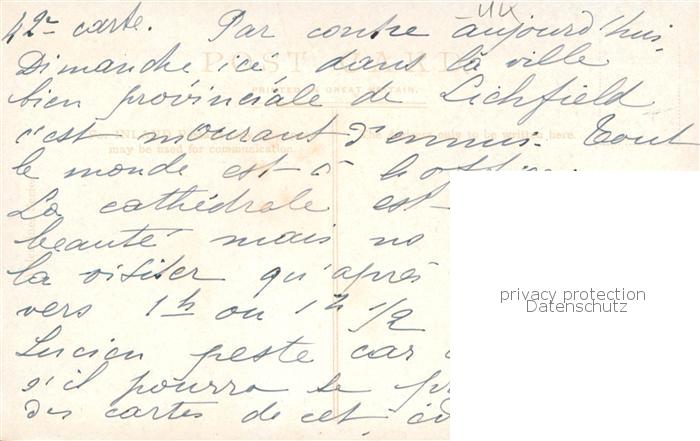 42e carte. Par contre aujourd'hui
Dimanche ici dans la ville
bien provinciale de Lichfield
c'est mourant d'ennui. Tout
le monde est à
La cathédrale est
beauté mais no
la visiter qu'après
vers 1h ou 1h 1/2
Lucien peste car
s'il pourra se
des cartes de cet
POST CARD
PRINTED IN GREAT BRITAIN.
INLAND only to be written here.
may be used for communication.
privacy protection
Datenschutz
UK